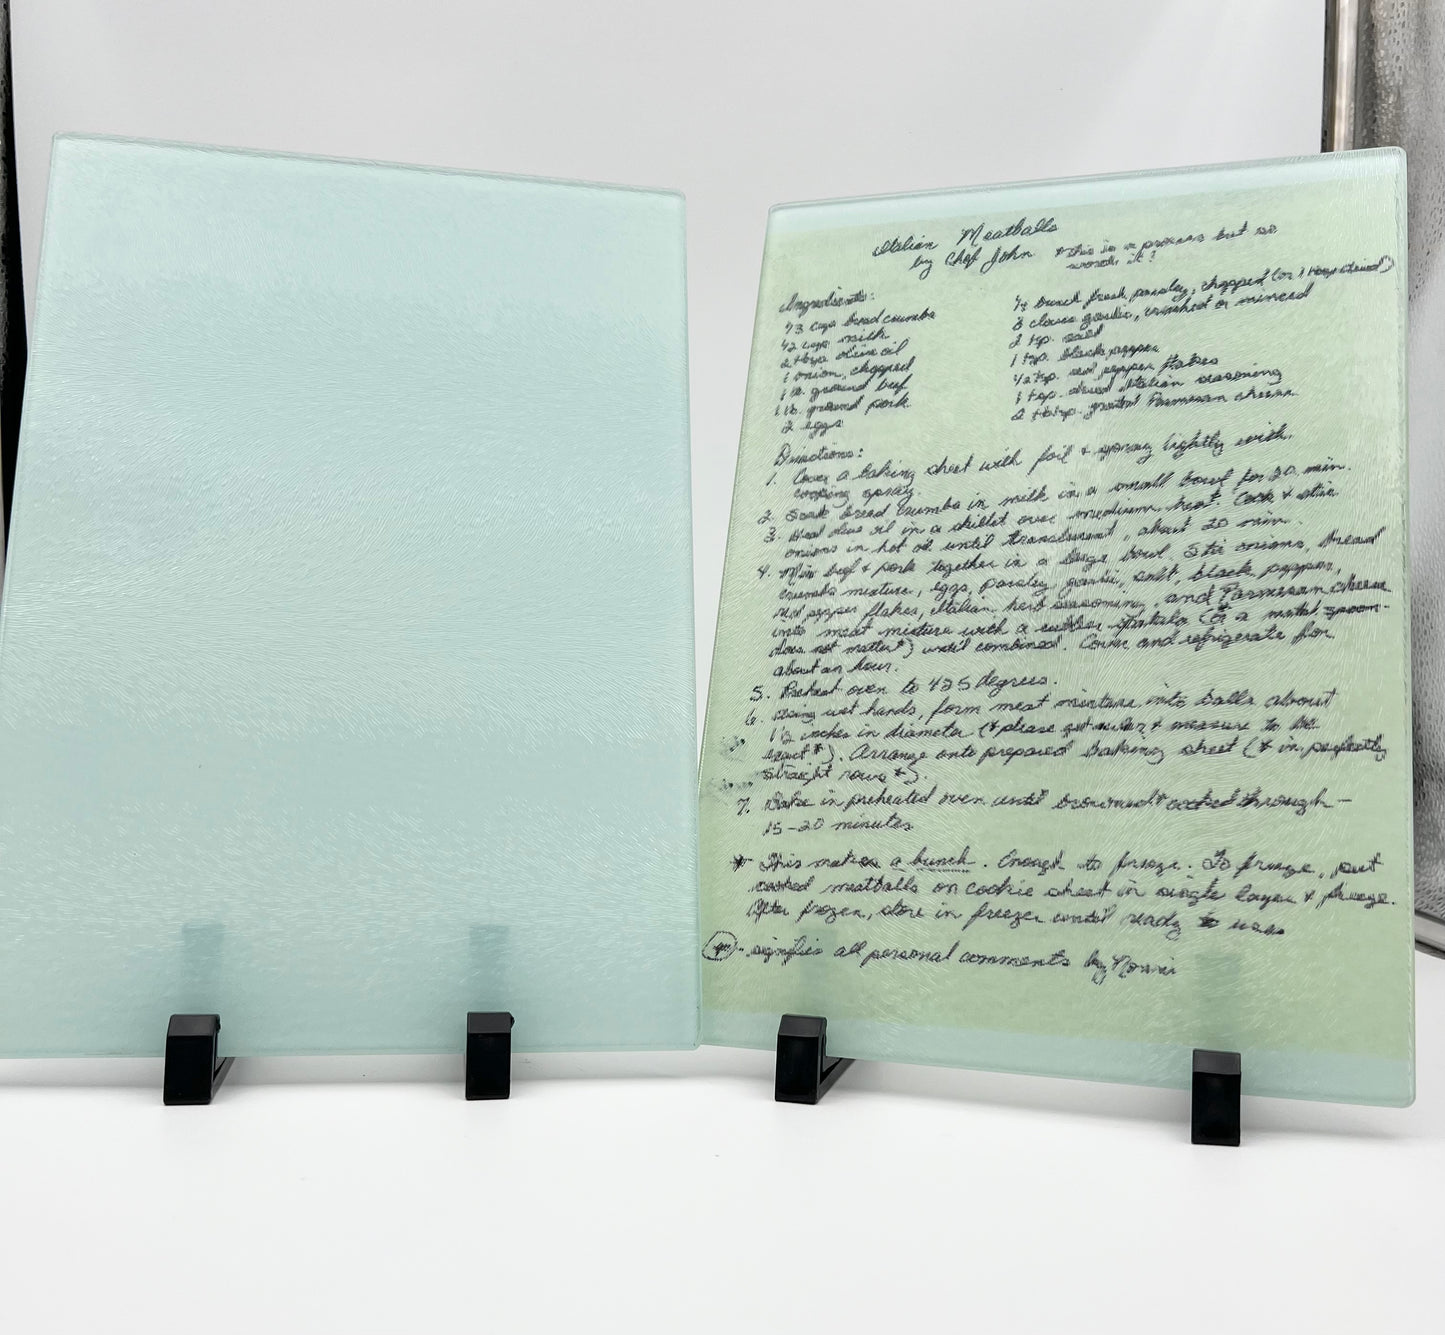 Italian Meatballs
by Chef John *this is a process but so
worth it!
Ingredients:
1/3 cup bread crumbs
1/2 cup milk
2 tbsp olive oil
1 onion, chopped
1 lb. ground beef
1 lb. ground pork
2 eggs
1/4 bunch fresh parsley, chopped (or 1 tbsp dried)
3 cloves garlic, crushed or minced
2 tsp. salt
1 tsp. black pepper
1/2 tsp. red pepper flakes
1 tsp. dried Italian seasoning
2 tbsp. grated Parmesan cheese
Directions:
1. Cover a baking sheet with foil + spray lightly with
cooking spray.
2. Soak bread crumbs in milk in a small bowl for 20 min.
3. Heat olive oil in a skillet over medium heat. Cook + stir
onions in hot oil until translucent, about 20 min.
4. Mix beef + pork together in a large bowl. Stir onions, bread
crumbs mixture, eggs, parsley, garlic, salt, black pepper,
red pepper flakes, Italian herb seasoning, and Parmesan cheese
into meat mixture with a rubber spatula (* a metal spoon
does not matter*) until combined. Cover and refrigerate for
about an hour.
5. Preheat oven to 425 degrees.
6. Using wet hands, form meat mixture into balls about
1 1/2 inches in diameter (*please get ruler + measure to be
exact*). Arrange onto prepared baking sheet (* in perfectly
straight rows*).
7. Bake in preheated oven until browned + cooked through -
15-20 minutes
* This makes a bunch. Enough to freeze. To freeze, put
cooked meatballs on cookie sheet in single layer + freeze.
After frozen, store in freezer until ready to use
- signifies all personal comments by